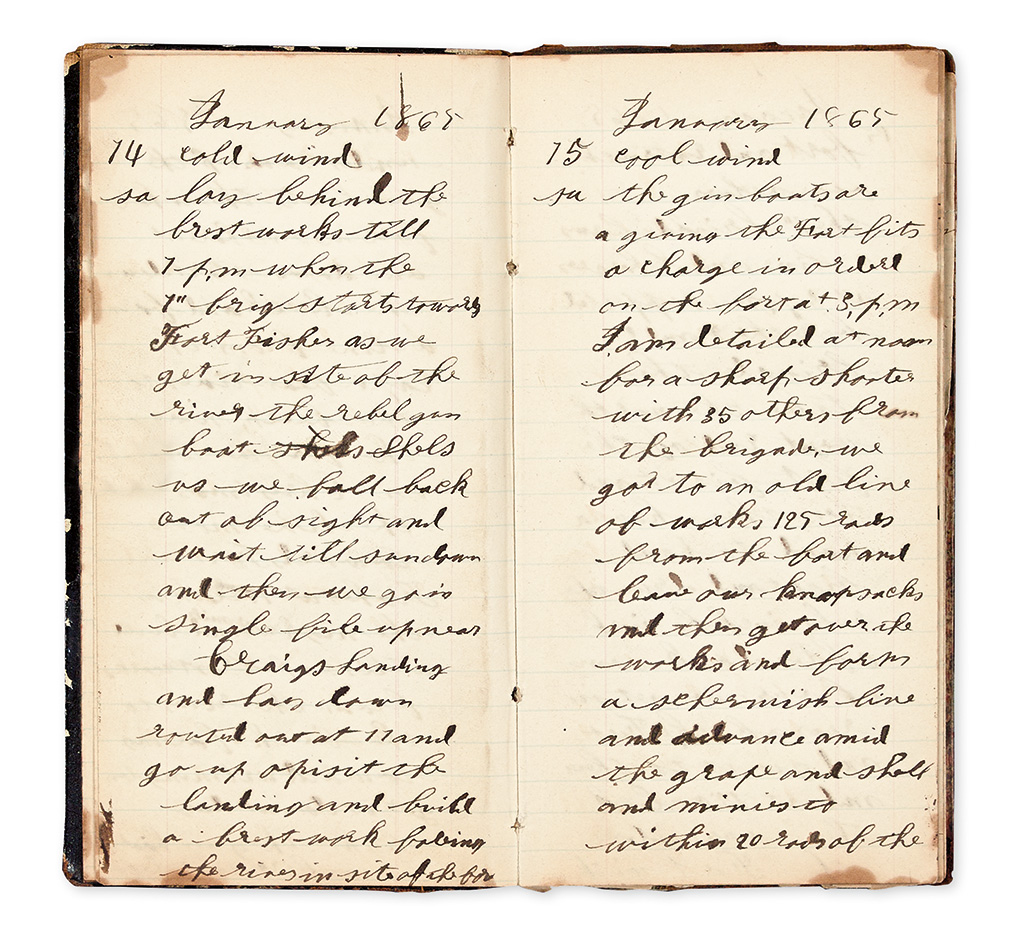 January 1865
14 cold wind
sa lay behind the
brest works till
1 p,m when the
1" brig starts towards
Fort Fisher as we
get in site of the
river the rebel gun
boat shels Shels
us we fall back
out of sight and
wait till sundown
and then we go in
single file up near
Craigs Landing
and lay down
routed out at 11 and
go up opisit the
landing and build
a brest work faceing
the river in site of the
January 1865
15 cool wind
su the gun boats are
a giving the Fort fits
a charge in orderd
on the fort at 3, p,m
I am detailed at noon
for a sharp shooter
with 35 others from
the brigade, we
got to an old line
of works 125 rods
from the fort and
leave our knapsacks
and then get over the
works and form
a schermish line
and advance amid
the grape and shell
and minies to
within 20 rods of the